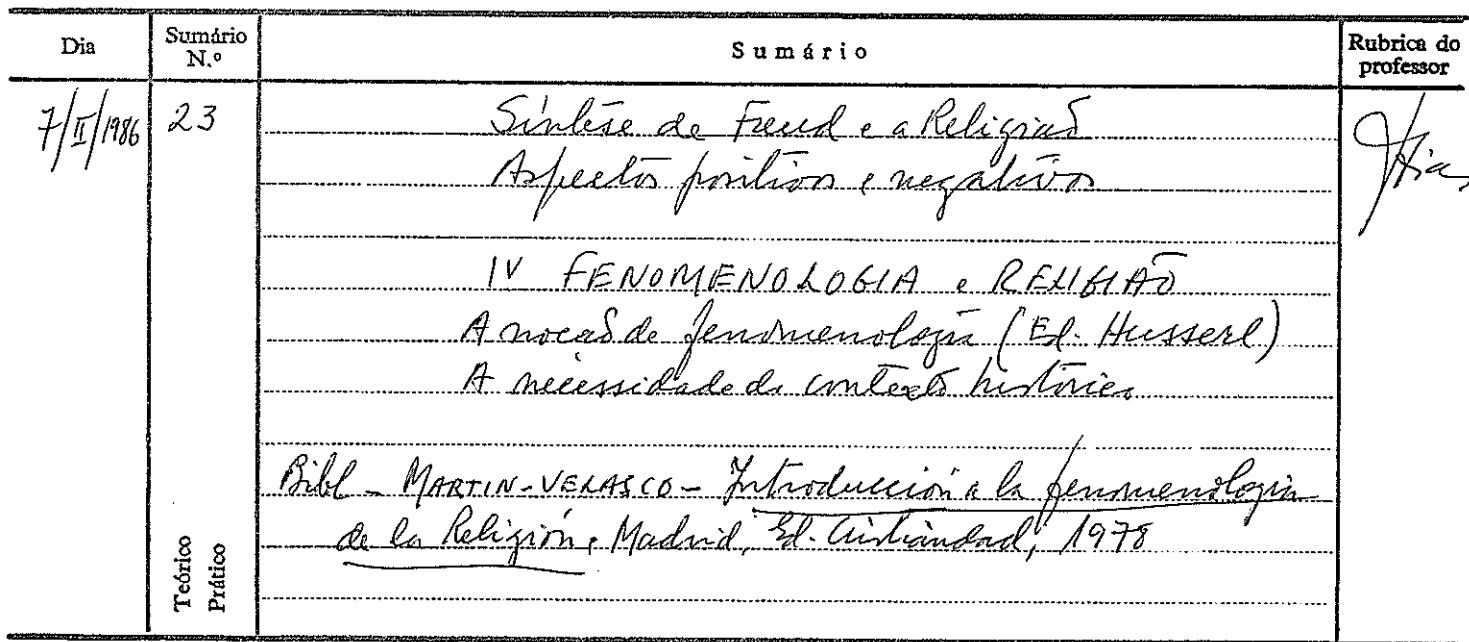 Dia
Sumário N.º
Sumário
Rubrica do professor
7/II/1986
23
Síntese de Freud e a Religião
Aspectos positivos e negativos
IV FENOMENOLOGIA e RELIGIÃO
A noção de fenomenologia (Ed. Husserl)
A necessidade do contexto histórico
Bibl - MARTIN-VELASCO - Introducción a la fenomenologia
de la Religión, Madrid, Ed. Cristiandad, 1978
Teórico
Prático